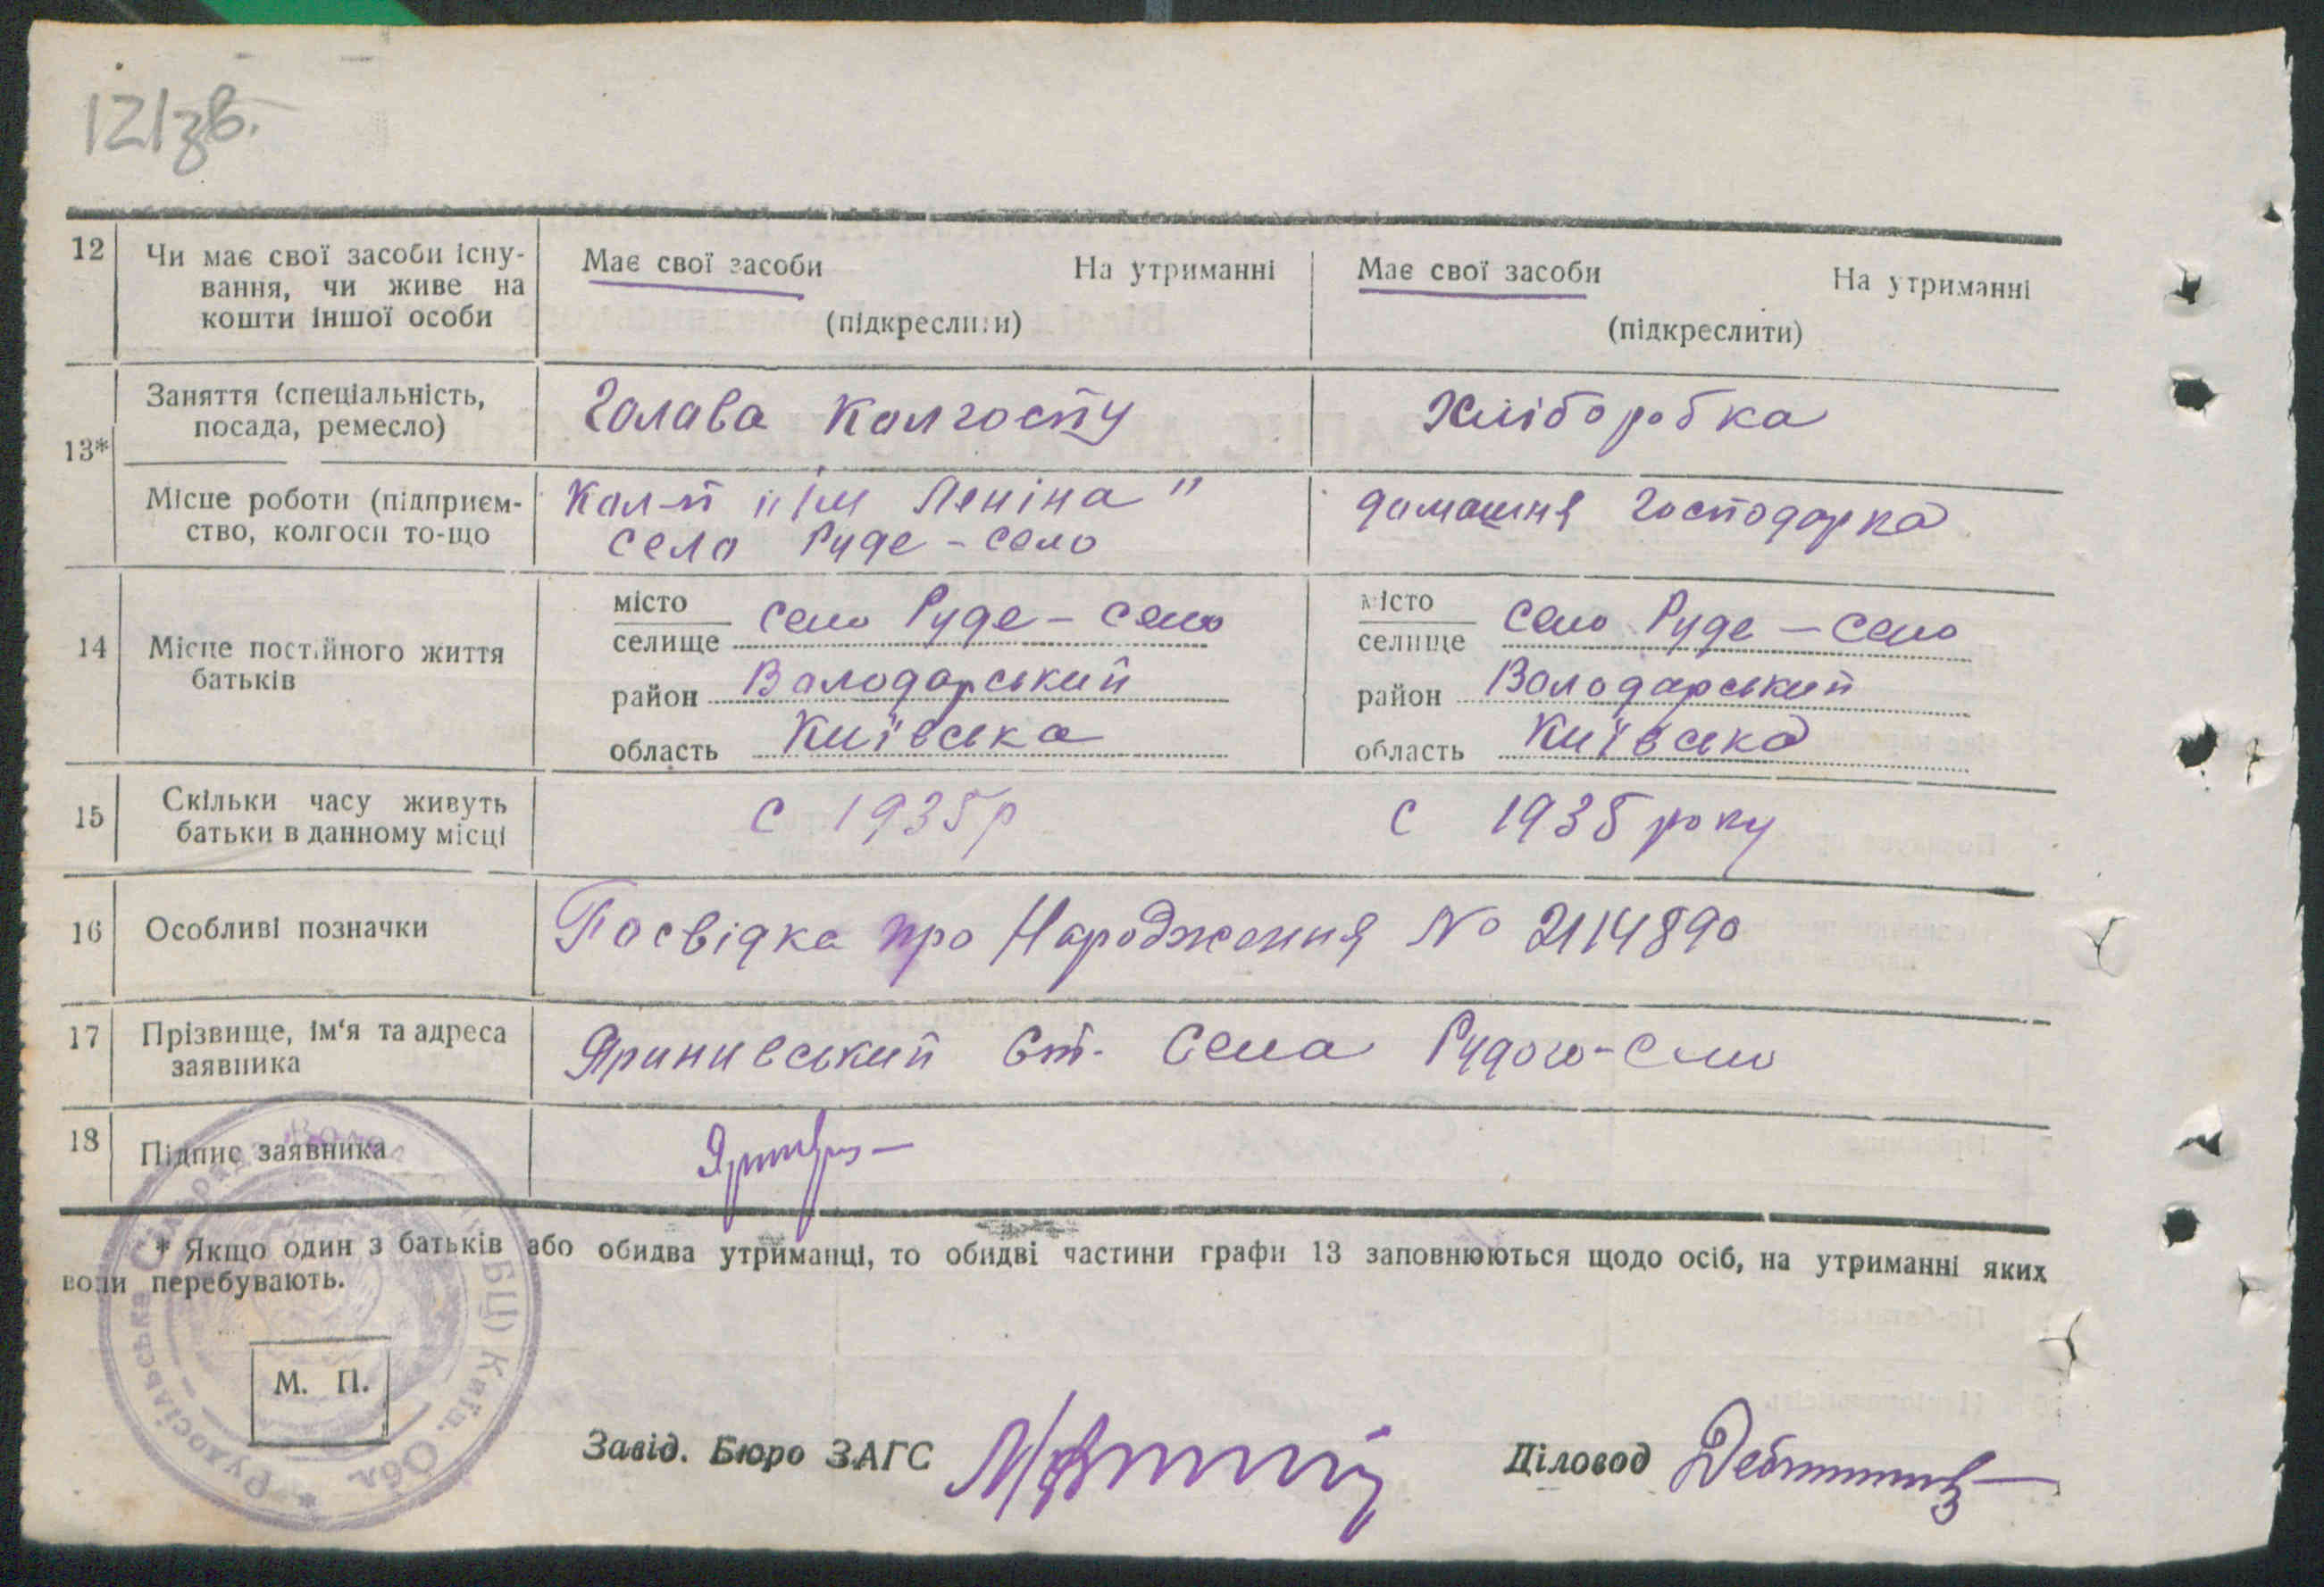 121зв.
12 Чи має свої засоби існу-
вання, чи живе на
кошти іншої особи
Має свої засоби На утриманні
(підкреслити)
Має свої засоби На утриманні
(підкреслити)
13*
Заняття (спеціальність,
посада, ремесло)
Голава Колгоспу
Хліборобка
Місце роботи (підприєм-
ство, колгосп то-що
Кол-п "ім Леніна"
село Руде-село
домашня господарка
14 Місце постійного життя
батьків
місто
селище село Руде-село
район Володарський
область Київська
місто
селище село Руде-село
район Володарський
область Київська
15 Скільки часу живуть
батьки в данному місці
с 1935р
с 1935 року
16 Особливі позначки
Посвідка про Народження № 2114890
17 Прізвище, ім'я та адреса
заявника
Яринивський Ст. Села Рудого-село
18 Підпис заявника
* Якщо один з батьків або обидва утриманці, то обидві частини графи 13 заповнюються щодо осіб, на утриманні яких
вони перебувають.
М. П.
Рудосільська Сільрада Волод. (БЦ) Київ. Обл.
Завід. Бюро ЗАГС
Діловод